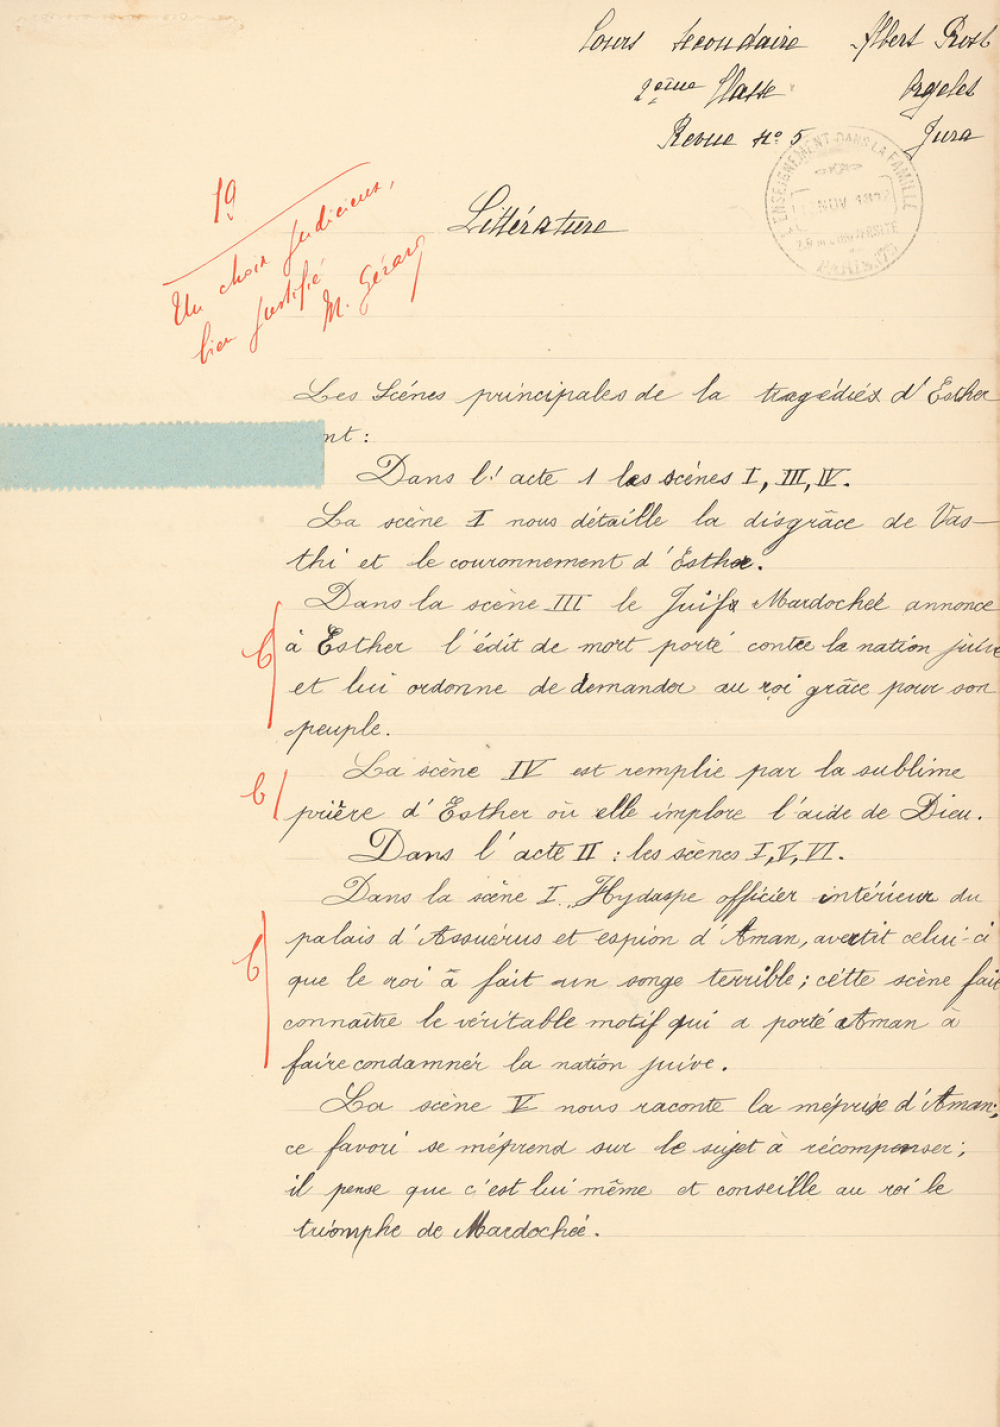 Cours secondaire Albert Prost
2ème Classe Orgelet
Revue No 5 Jura
L'ENSEIGNEMENT DANS LA FAMILLE
NOV
PARIS
19
Un choix judicieux,
bien justifié
M. Gérard
Littérature
Les Scènes principales de la tragédies d'Esther
nt :
Dans l'acte 1 les scènes I, III, IV.
La scène I nous détaille la disgrâce de Vas-
thi et le couronnement d'Esther.
Dans la scène III le Juifs Mardochée annonce
à Esther l'édit de mort porté contre la nation juive
et lui ordonne de demander au roi grâce pour son
peuple.
La scène IV est remplie par la sublime
prière d'Esther où elle implore l'aide de Dieu.
Dans l'acte II : les scènes I, V, VI.
Dans la scène I. Hydaspe officier intérieur du
palais d'Assuérus et espion d'Aman, avertit celui-ci
que le roi à fait un songe terrible ; cette scène fait
connaître le véritable motif qui a porté Aman à
faire condamner la nation juive.
La scène V nous raconte la méprise d'Aman ;
ce favori se méprend sur le sujet à récompenser ;
il pense que c'est lui même et conseille au roi le
triomphe de Mardochée.
b
b
b